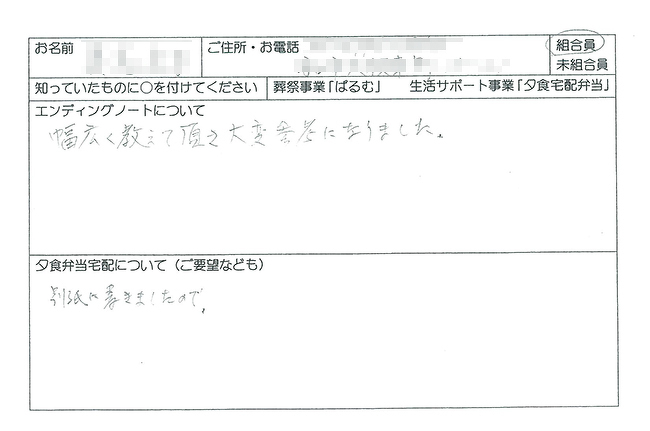 お名前
ご住所・お電話
組合員
未組合員
知っていたものに○を付けてください
葬祭事業「ぱるむ」 生活サポート事業「夕食宅配弁当」
エンディングノートについて
幅広く教えて頂き大変参考になりました。
夕食弁当宅配について（ご要望なども）
別紙に書きましたので、